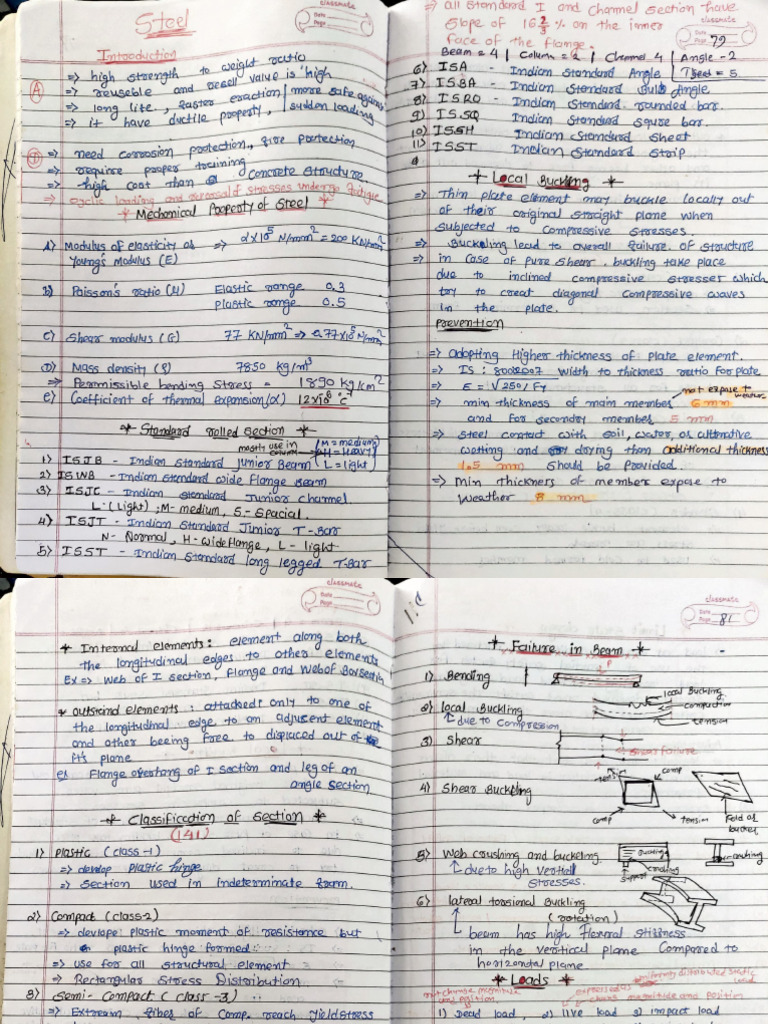 Steel
classmate
Date
Page
Introduction
(A) ⇒ high strength to weight ratio
⇒ reuseble and resell value is high
⇒ long life, easter eraction / more safe against
⇒ it have ductile property, / sudden loading
(D) ⇒ need corrosion protection, fire portection
⇒ require proper training
⇒ high cost than concrete structure
⇒ cyclic loading and reversal of stresses undergo fatigue
* Mechanical Property of Steel *
A) Modulus of elasticity or ⇒ 2x10^5 N/mm² = 200 KN/mm²
Young's Modulus (E)
b) Poission's ratio (μ) Elastic range 0.3
plastic range 0.5
c) Shear modulus (G) 77 KN/mm² ⇒ 0.77x10^5 N/mm²
(D) Mass density (ρ) 7850 kg/m³
⇒ Permissible bending Stress = 1890 kg/cm²
e) Coefficient of thermal expansion(α) 12x10^6 °c^-1
* Standard rolled section *
mostly use in column
(M = medium
H = Heavy
L = light)
1) ISJB - Indian standard junior Beam
2) ISWB - Indian standard wide Flange Beam
3) ISJC - Indian standard Junior channel
L-(Light), M-medium, S.-Spacial.
4) ISJT - Indian Standard Junior T-Bar
N- Normal, H-wide flange, L- light
5) ISST - Indian Standard long legged T-Bar
⇒ all standard I and channel section have
slope of 16 2/3 % on the inner
face of the flange.
classmate
Date
Page 79
Beam = 4 | Column = 2 | Channel 4 | Angle - 2
Tseed = 5
6) ISA - Indian Standard Angle
7) ISBA - Indian Standard Bulb Angle
8) ISRO - Indian Standard rounded bar.
9) ISSQ - Indian Standard squre bar.
10) ISSH Indian Standard Sheet
11) ISST Indian Standard Strip
* Local Buckling *
⇒ Thin plate element may buckle locally out
of their original straight plane when
subjected to compressive stresses.
⇒ Buckeling lead to overall failure of structure
⇒ in case of pure shear, buckling take place
due to inclined compressive stresser which
try to creat diagonal compressive waves
in the plate.
Prevention
⇒ adopting Higher thickness of plate element.
⇒ IS : 800:2007 width to thickness ratio for plate
⇒ E = √250/Fy
not expose to weather
⇒ min thickness of main member 6 mm
and for secondry member 5 mm
⇒ steel contact with soil, water, or alternative
wetting and drying then additional thickness
1.5 mm should be provided.
⇒ Min thickness of member expose to
weather 8 mm
classmate
Date
Page
* Internal elements: element along both
the longitudinal edges to other elements
Ex ⇒ Web of I section, Flange and Web of Box section
* outstand elements : attached only to one of
the longitudinal edge to an adjucent element
and other beeing free to displaced out of
it's plane
ex Flange overhang of I section and leg of an
angle section
* Classification of section *
(141)
1) plastic (class-1)
⇒ devlop plastic hinge
⇒ section used in indeterminate fram.
2) Compact (class-2)
⇒ devlope plastic moment of resistance but
plastic hinge formed.
⇒ use for all structural element
⇒ Rectangular Stress Distribution.
3) Semi-Compact (class-3)
⇒ Extream fiber of Comp. reach yield stress
classmate
Date
Page 81
* Failure in Beam *
P
1) Bending
2) local Buckling
due to Compression
local Buckling
compression
tension
3) Shear
shear failure
4) Shear Buckling
comp
comp
tension
Fold or buckel
5) Web crushing and buckeling
due to high vertical
stresses.
Buckling
crushing
support
crushing
6) lateral torsional Buckling
(rotation)
beam has high flexural stiffness
in the vertical plane Compared to
horizontal plane
* Loads *
uniformly distributed static load
not change magnitude and position
magnitude and position
1) Dead load, 2) live load 3) impact load